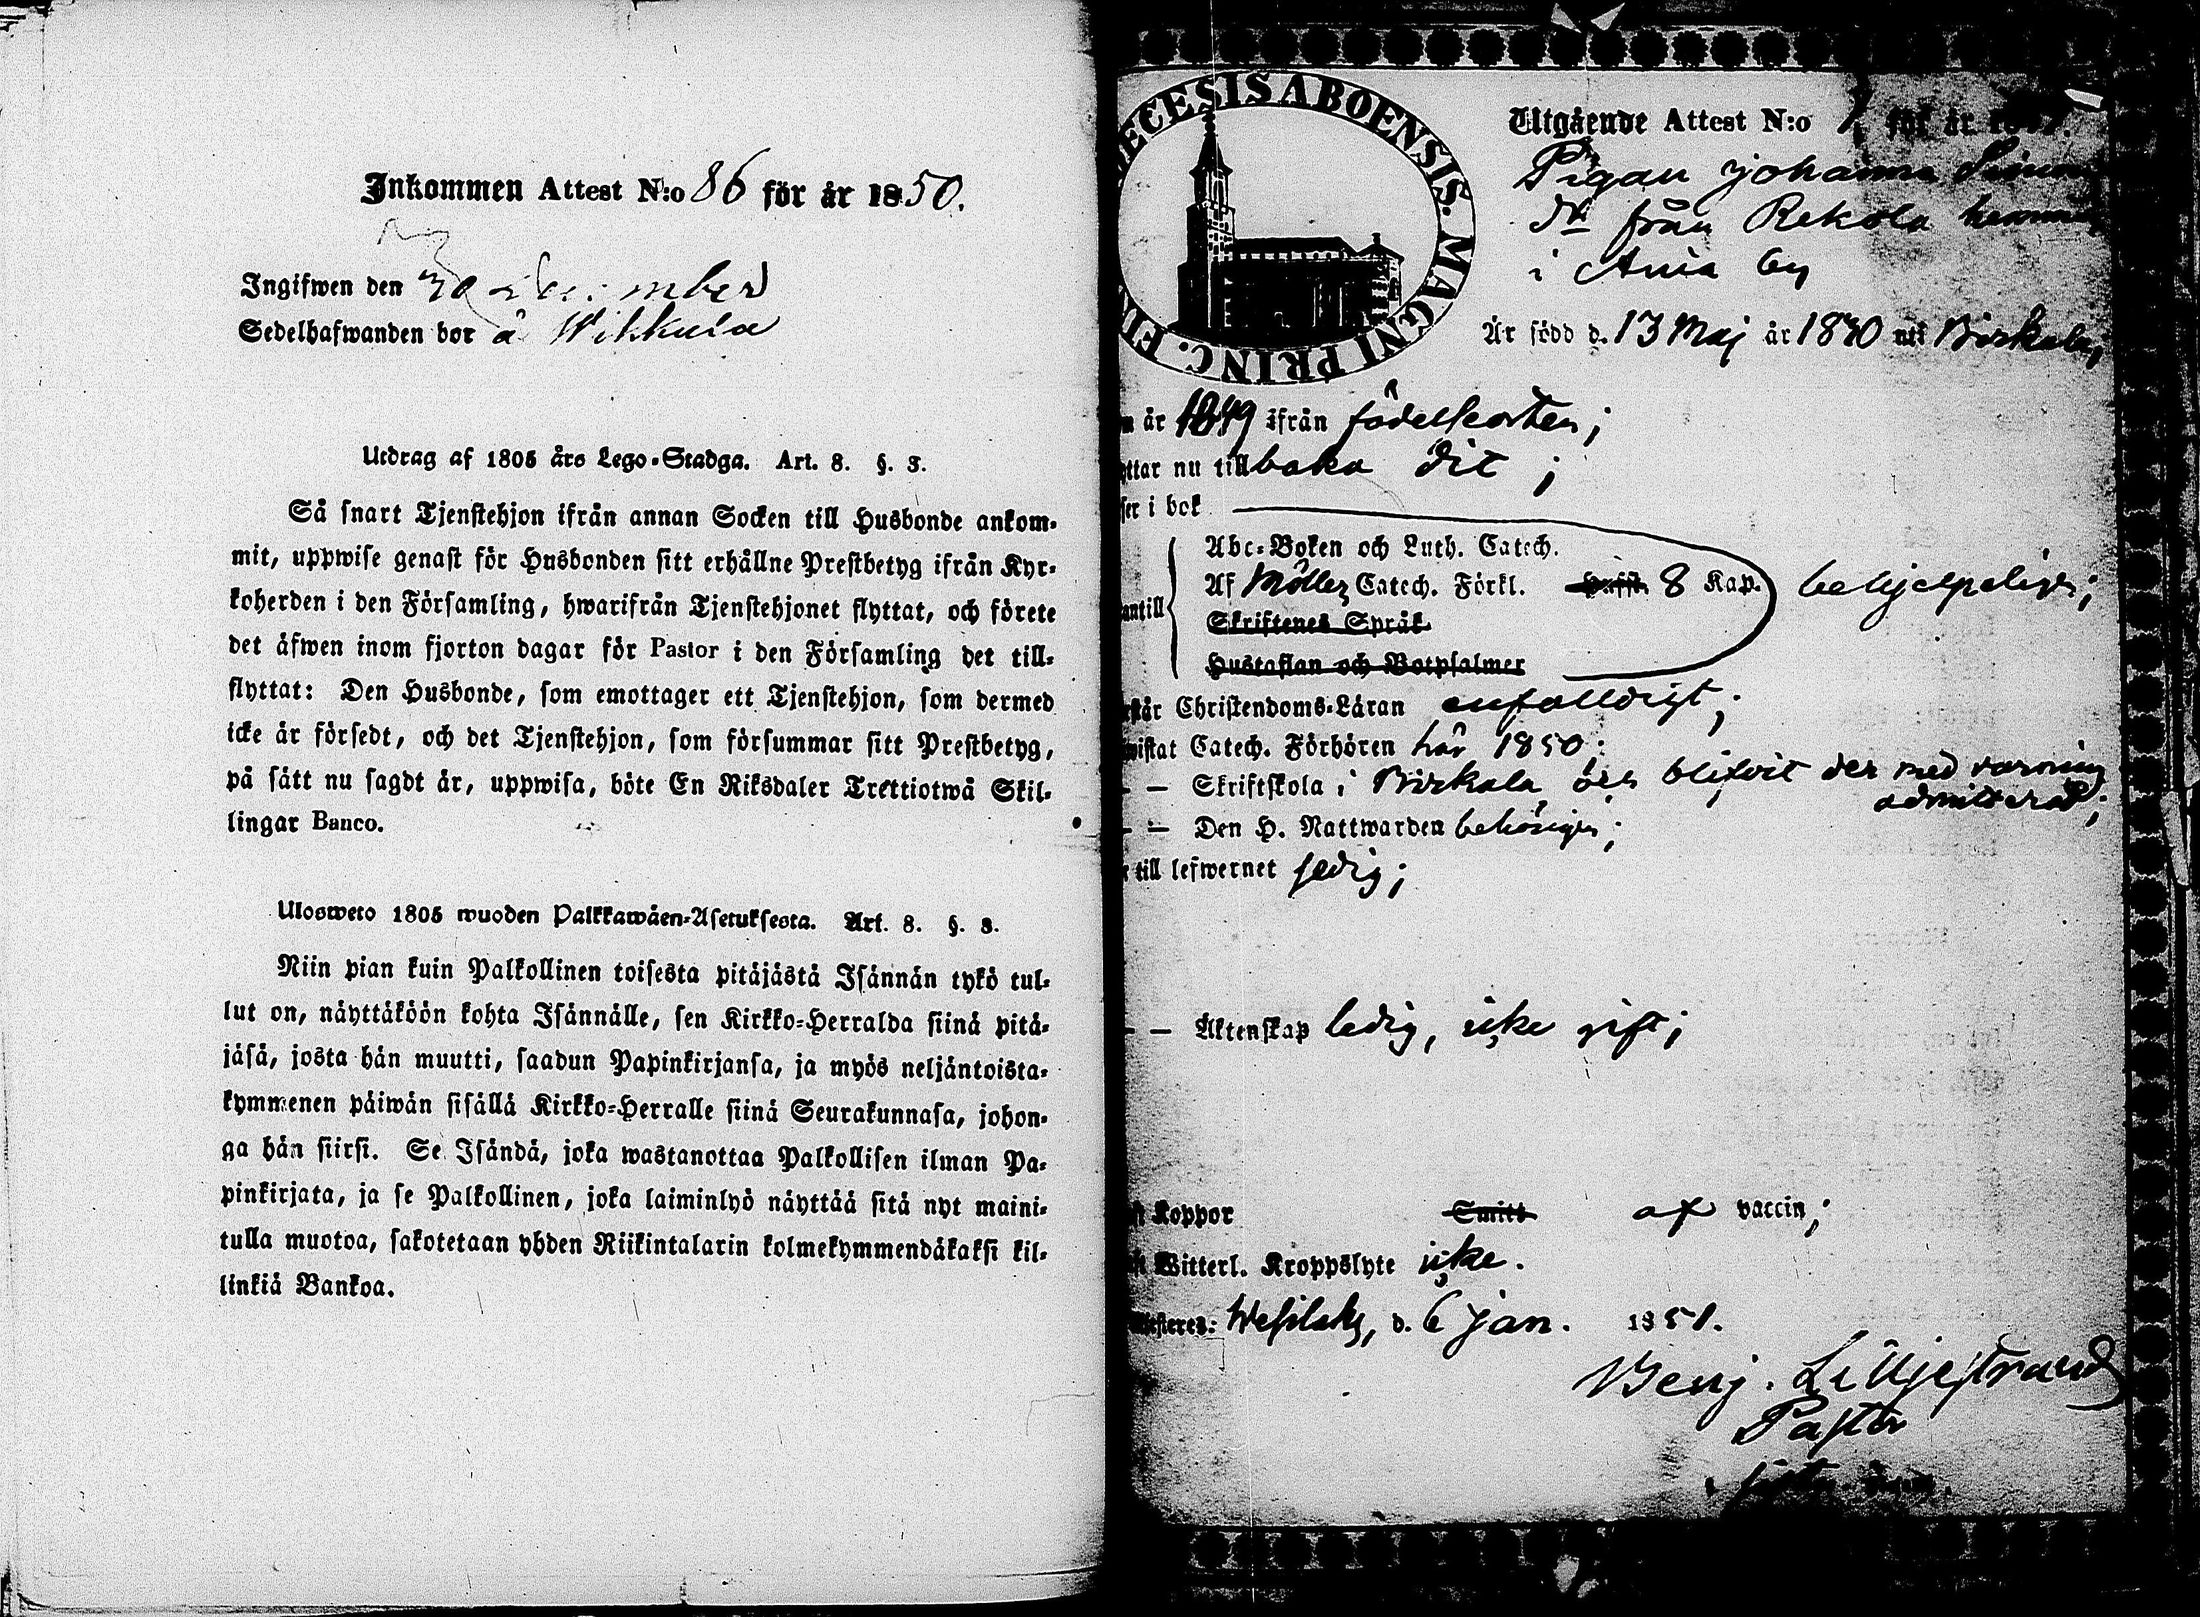 Inkommen Attest N:o 86 för år 1850.
Ingifwen den 30 december
Sedelhafwanden bor å Wikkula
Utdrag af 1805 års Lego-Stadga. Art. 8. §. 3.
Så snart Tjenstehjon ifrån annan Socken till Husbonde ankom-
mit, uppwise genast för Husbonden sitt erhållne Prestbetyg ifrån Kyr-
koherden i den Församling, hwarifrån Tjenstehjonet flyttat, och förete
det äfwen inom fjorton dagar för Pastor i den Församling det till-
flyttat: Den Husbonde, som emottager ett Tjenstehjon, som dermed
icke är försedt, och det Tjenstehjon, som försummar sitt Prestbetyg,
på sätt nu sagdt är, uppwisa, böte En Riksdaler Trettiotwå Skil-
lingar Banco.
Ulosweto 1805 wuoden Palkkawäen-Asetuksesta. Art. 8. §. 3.
Niin pian kuin Palkollinen toisesta pitäjästä Isännän tykö tul-
lut on, näyttäköön kohta Isännälle, sen Kirkko-Herralda siinä pitä-
jäsä, josta hän muutti, saadun Papinkirjansa, ja myös neljäntoista-
kymmenen päiwän sisällä Kirkko-Herralle siinä Seurakunnasa, johon-
ga hän siirsi. Se Isändä, joka wastanottaa Palkollisen ilman Pa-
pinkirjata, ja se Palkollinen, joka laiminlyö näyttää sitä nyt maini-
tulla muotoa, sakotetaan yhden Riikintalarin kolmekymmendäkaksi kil-
linkiä Bankoa.
ECESIS ABOENSIS. MAGNI PRINC. FI
Utgående Attest N:o 1 för år
Pigan Johanna Simons
dr från Rekola hemman
i Ania by
Är född d. 13 Maj år 1830 uti Birkala,
år 1849 ifrån födelseorten;
yttar nu tillbaka dit;
ser i bok
Abc-Boken och Luth. Catech.
Af Möllers Catech. Förkl. Hufst. 8 Kap. behjelpeligen;
antill
Skriftenes Språk
Hustaflan och Botpsalmer
står Christendoms-Läran enfalldigt;
wistat Catech. Förhören här 1850;
— — Skriftskola i Birkala, och blifvit der med varning
admitterad;
— — Den H. Nattwarden behörigen;
till lefwernet sedig;
— — Äktenskap ledig, icke gift;
Koppor Smitt af vaccin;
Witterl. Kroppslyte icke.
Attesteres: Wesilaks, d. 6 Jan. 1851.
Benj. Lilljestrand
Pastor